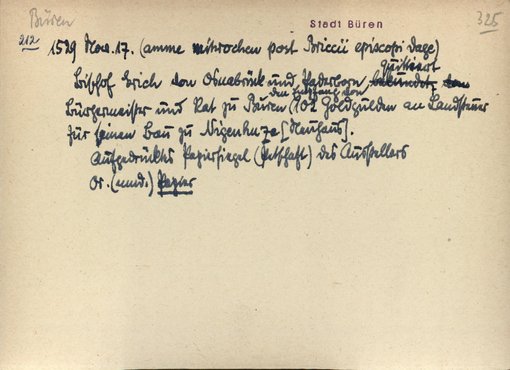 Büren
Stadt Büren
325
212
1529 Nov. 17. (amme mitwochen post Briccii episcopi dage)
quittiert
Bischof Erich von Osnabrück und Paderborn bekundet, dem
den Empfang von
Bürgermeister und Rat zu Büren (102 Goldgulden an Landsteuer
für seinen Bau zu Nigenhuze [Neuhaus].
Aufgedrücktes Papiersiegel (Petschaft) des Ausstellers
Or. (mnd.) Papier